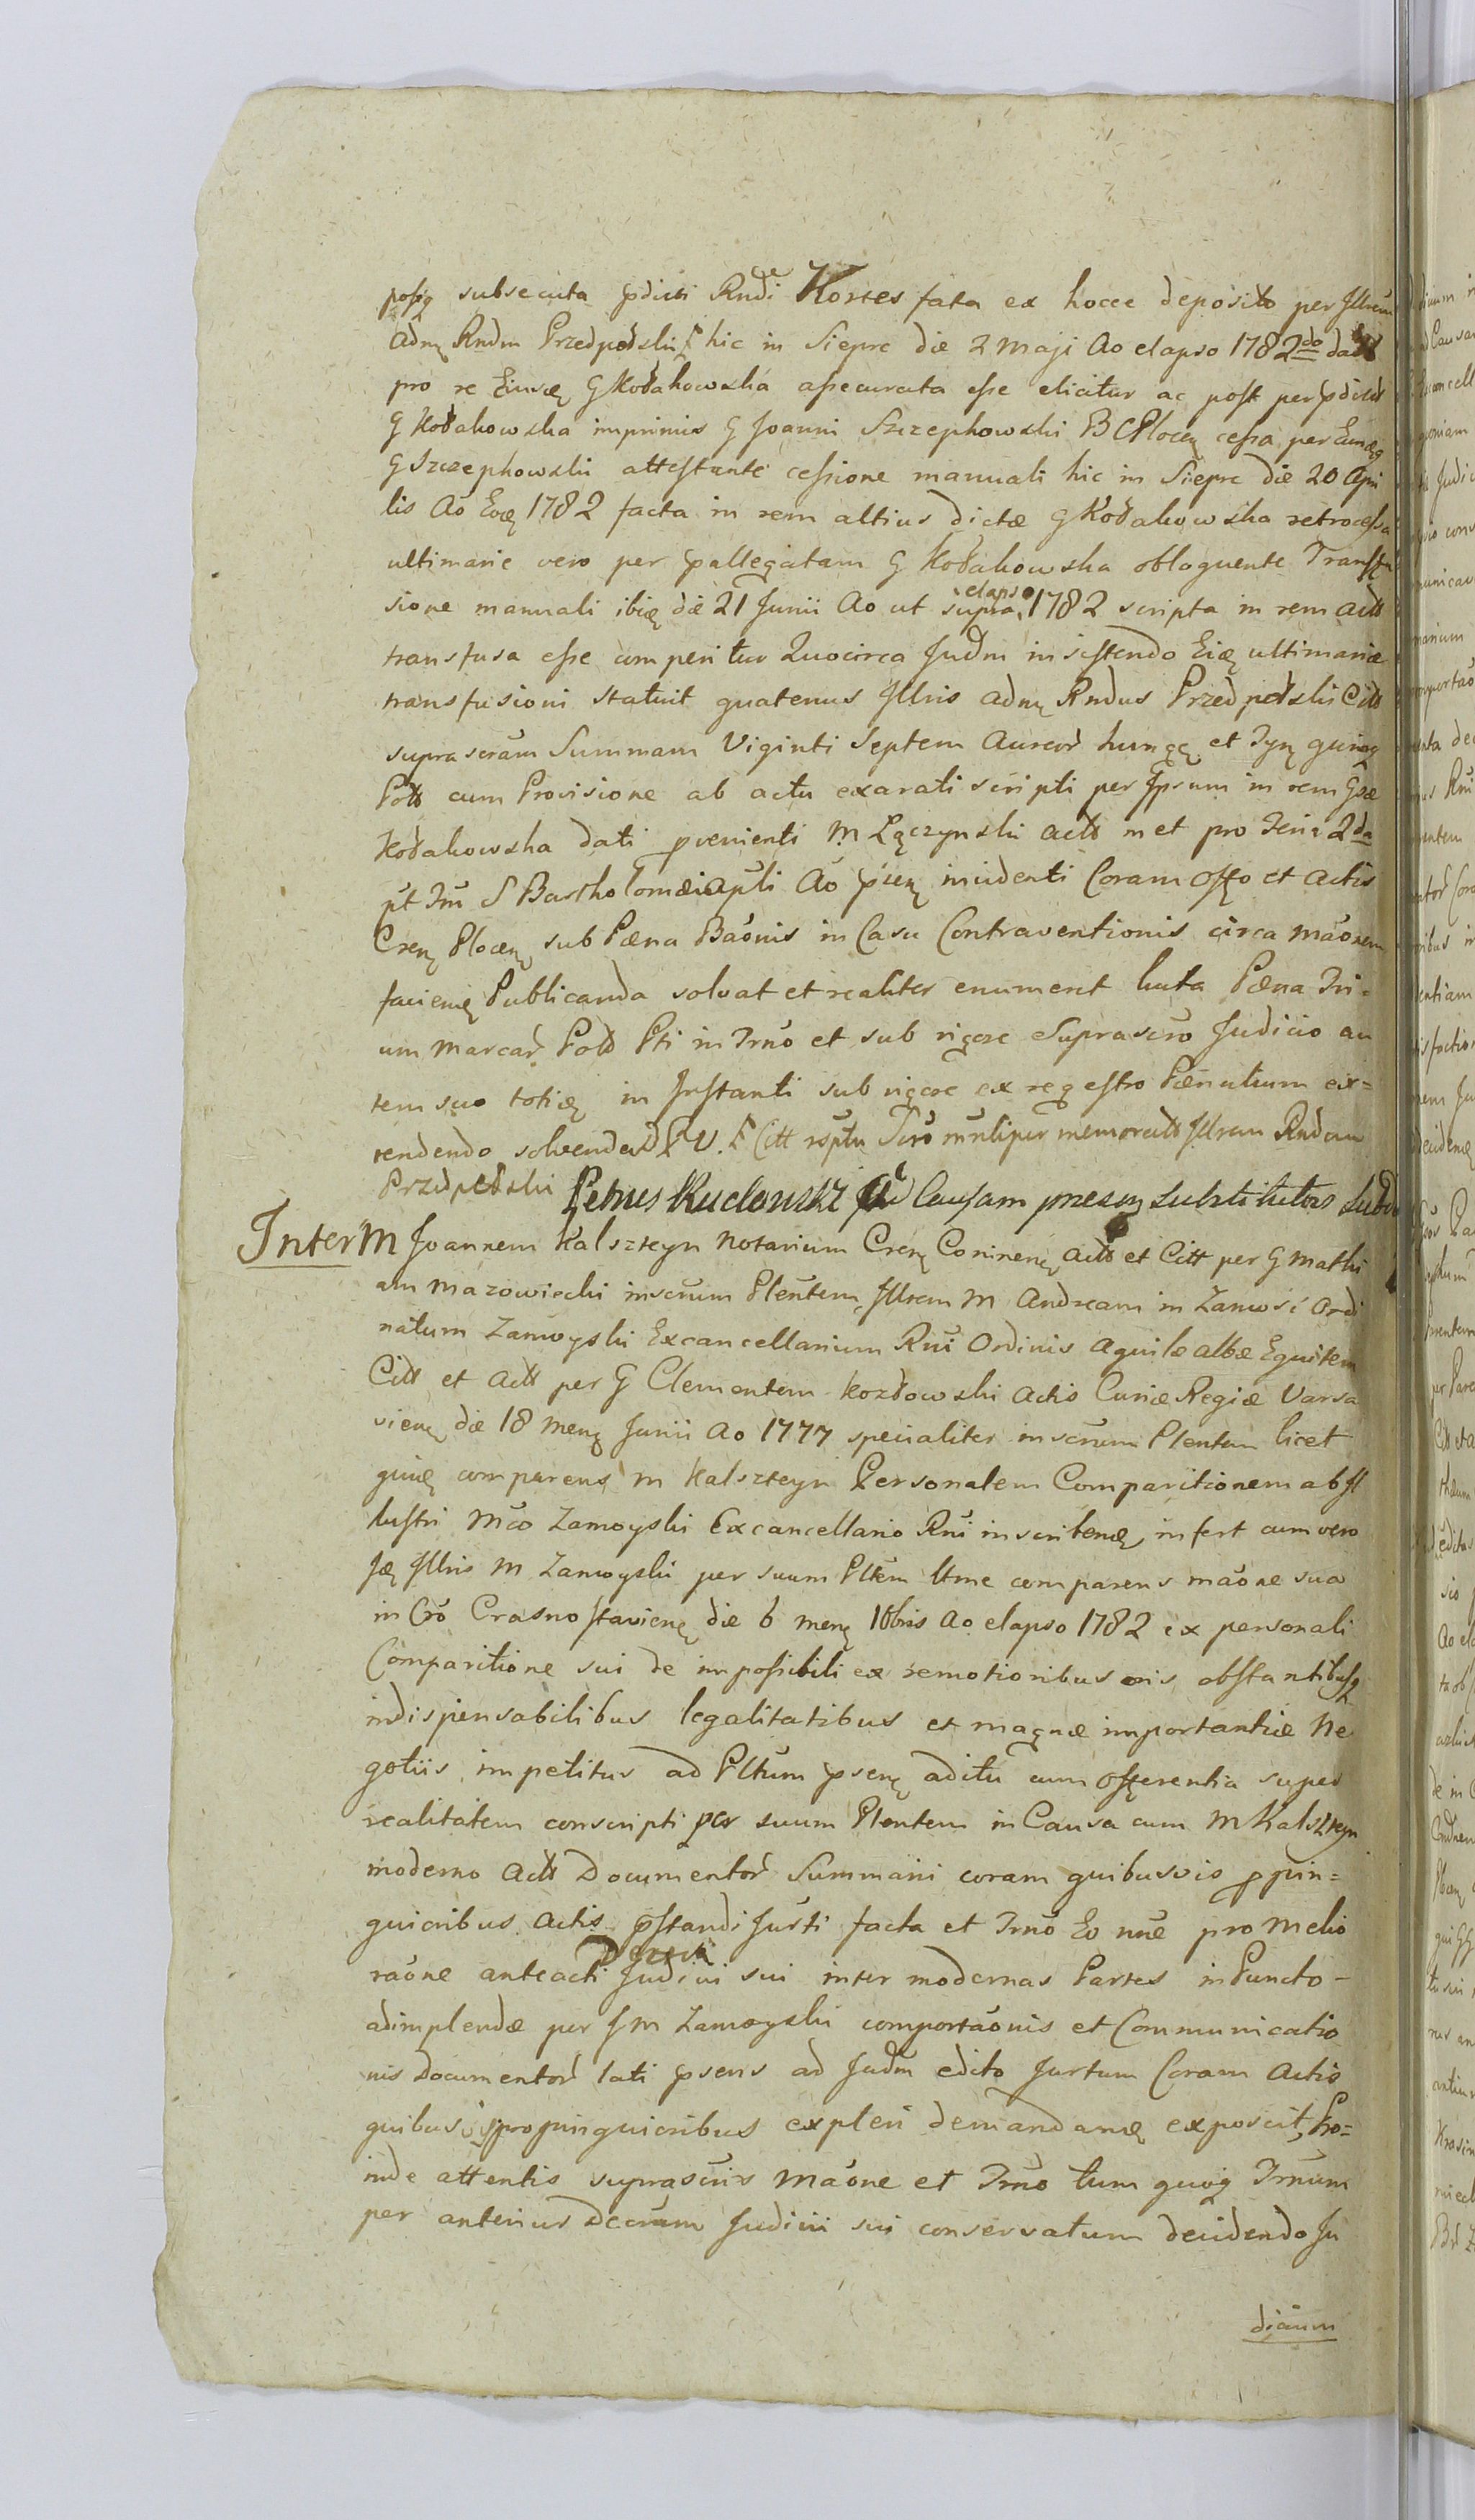 subsecuta pdicti Rndi Kostes fata ex hocce deposito per Illrem
Adm Rndm Przedpełski hic in Sieprc die 2 Maji Ao elapso 1782do
pro re Kołakowska assecurata esse elicitur ac post per pdictā
G Kołakowska inprimis G Joanni Szczepkowski B C Plocen cessa per
G Szczepkowski attestante cessione manuali hic in Sieprc die 20 Apri
lis Ao 1782 facta in rem altius dictæ G Kołakowska retrocessa
ultimarie vero per pallegatam G Kołakowska obloquente Transfu
sione manuali die 21 Junii Ao ut supra elapso 1782 scripta in rem Actt
transfusa esse comperitur Quocirca Judm insistendo ultimariæ
transfusioni statuit quatenus Illris Adm Rndus Przedpełski Citt
suprascram Summam Viginti Septem Aureor et quinq
Poll cum Provisione ab actu exarati scripti per Ipsum in rem Gsæ
Kołakowska dati pvenienti M Łączynski Actt met pro Feria 2da
pt Fm S Bartholomæi Apli Ao incidenti Coram Offo et Actis
Plocen sub Pæna Baonis in Casu Contraventionis circa maonem
Publicanda solvat et realiter enumeret luita Pæna Tri=
um Marcar Poll Pti in Trno et sub rigore Suprascro Judicio au
tem suo in Instanti sub rigore ex regestro Pænalium ex=
tendendo solvendar P V. F Citt rsptu Scro mnliper memoratt Illrem Rndum
Przedpełski Petrus Ruclowski ad Causam præsen Substitutus
Inter M Joannem Kalszteyn Notarium Coninen Actt et Citt per G Mathi
am Mazowiecki inscrum Plentem, Illrem M Andream in Zamosc Ordi
natum Zamoyski Excancellarium Rni Ordinis Aquilæ albæ Equitem
Citt et Actt per G Clementem Kozłowski Actis Curiæ Regiæ Varsa
vien die 18 Men Junii Ao 1777 specialiter inscrum Plentem licet
comparens M Kalszteyn Personalem Comparitionem ab Il
lustri Mco Zamoyski Excancellario Rni inscriben, infert cum vero
Illris M Zamoyski per suum Pltem ltme comparens maone sua
in Cro Crasnostavien die 6 Men 10bris Ao elapso 1782 ex personali
Comparitione sui de impossibili ex remotioribus obstantibusq
indispensabilibus legalitatibus et magnæ importantiæ Ne
gotiis, impetitus ad Pltum psens aditu cum offerentia super
realitatem conscripti per suum Plentem in Causa cum M Kalszteyn
moderno Actt Documentor Summarii coram quibusvis ppin=
quioribus Actis pstandi Jurti facta et Trno Eo nne pro Melio
raone anteacti Decreti Judicii sui inter modernas Partes in Puncto
adimplendæ per I M Zamoyski comportaonis et Communicatio
nis Documentor lati psens ad Judm edito Jurtum Coram Actis
quibusvis propinquioribus expleri exposcit, Pro=
inde attentis suprascris Maone et Trno tum quoq Trnum
per anterius Decrum Judicii sui conservatum decidendo Ju
dicium